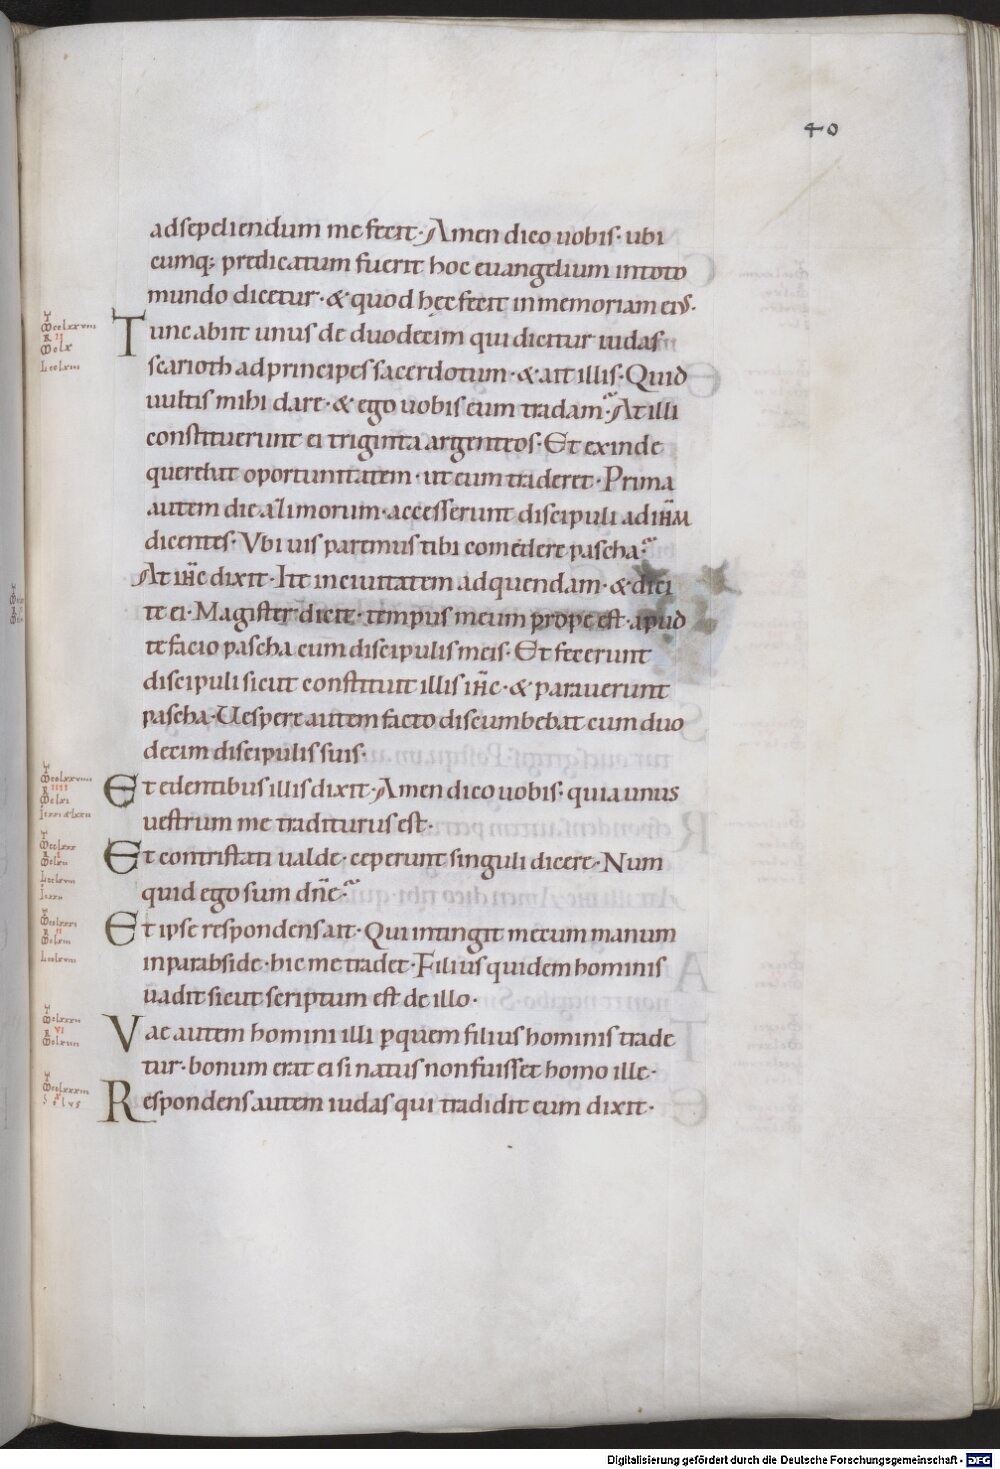 40
ad sepeliendum me fecit· Amen dico uobis· ubi
cumq; predicatum fuerit hoc euangelium in toto
mundo dicetur· & quod hęc fecit in memoriam eius·
Tunc abiit unus de duodecim qui dicitur iudas
scarioth ad principes sacerdotum· & ait illis· Quid
uultis mihi dare· & ego uobis eum tradam? At illi
constituerunt ei triginta argenteos· Et exinde
querebat oportunitatem· ut eum traderet· Prima
autem die azimorum· accesserunt discipuli ad ihm
dicentes· Vbi uis paremus tibi comedere pascha?
At ihc dixit· Ite in ciuitatem ad quendam· & dici
te ei· Magister dicit· tempus meum prope est· apud
te facio pascha cum discipulis meis· Et fecerunt
discipuli sicut constituit illis ihc· & parauerunt
pascha· Uespere autem facto discumbebat cum duo
decim discipulis suis·
Et edentibus illis dixit· Amen dico uobis· quia unus
uestrum me traditurus est·
Et contristati ualde· ceperunt singuli dicere· Num
quid ego sum dne?
Et ipse respondens ait· Qui intingit mecum manum
in parabside· hic me tradet· Filius quidem hominis
uadit sicut scriptum est de illo·
Vae autem homini illi p quem filius hominis trade
tur· bonum erat ei si natus non fuisset homo ille·
Respondens autem iudas qui tradidit eum dixit·
Digitalisierung gefördert durch die Deutsche Forschungsgemeinschaft - DFG